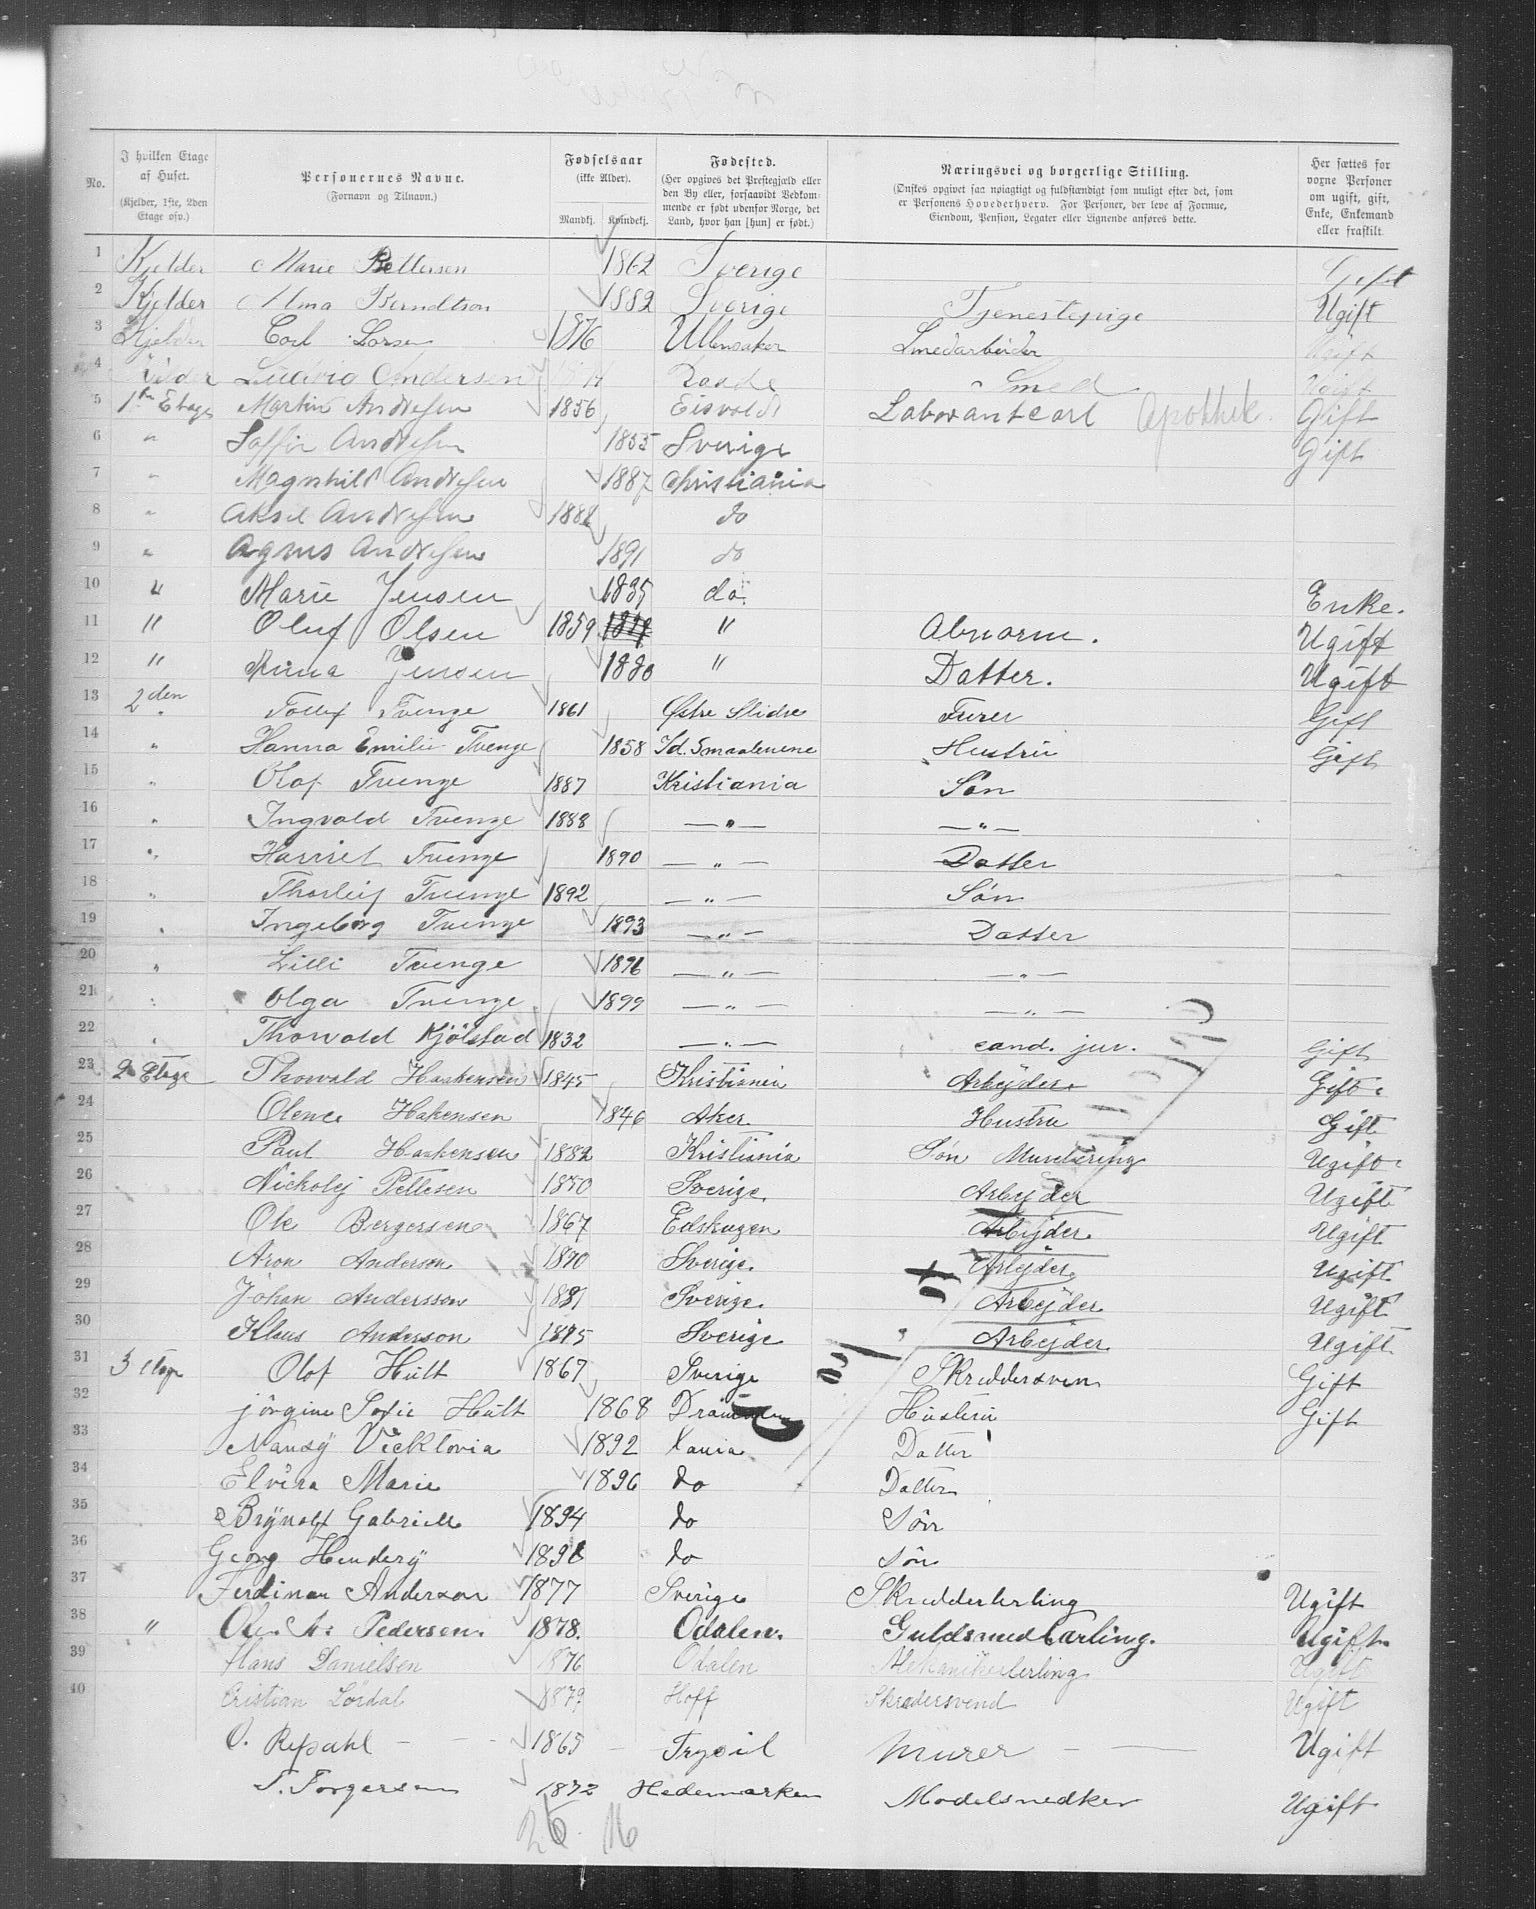 No. I hvilken Etage af Huset. (Kjelder, 1ste, 2den Etage osv.) Personernes Navne. (Fornavn og Tilnavn.) Fødselsaar (ikke Alder). Mandkj. Kvindekj. Fødested. (Her opgives det Prestegjæld eller den By eller, forsaavidt Vedkommende er født udenfor Norge, det Land, hvor han [hun] er født.) Næringsvei og borgerlige Stilling. (Ønskes opgivet saa nøiagtigt og fuldstændigt som muligt efter det, som er Personens Hovederhverv. For Personer, der leve af Formue, Eiendom, Pension, Legater eller Lignende anføres dette. Her sættes for voxne Personer om ugift, gift, Enke, Enkemand eller fraskilt.
1 Kjelder Marie Pettersen 1862 Sverige Gift
2 Kjelder Alma Berndtson 1882 Sverige Tjenestepige Ugift
3 Kjelder Carl Larsen 1876 Ullensaker Smedarbeider Ugift
4 Kjelder Ludvig Andersen Raade Smed Ugift
5 1ste Etage Martin Andresen 1856 Eisvold Laborantcarl Apothek. Gift
6 " Andresen 1855 Sverige Gift
7 " Magnhild Andresen 1887 Christiania
8 " Aksel Andresen 1888 do
9 " Agnes Andresen 1891 do
10 " Marie Jensen 1835 do. Enke.
11 " Oluf Olsen 1859 " Abnorm. Ugift
12 " Anna Jensen 1880 " Datter. Ugift
13 2den Tollef Tvenge 1861 Østre Slidre Furer Gift
14 " Hanna Emilie Tvenge 1858 Id. Smaalenene Hustru Gift
15 " Olaf Tvenge 1887 Kristiania Søn
16 " Ingvald Tvenge 1888 — " — — " —
17 " Harriet Tvenge 1890 — " — Datter
18 " Thorleif Tvenge 1892 — " — Søn
19 " Ingeborg Tvenge 1893 — " — Datter
20 " Lilli Tvenge 1896 — " — — " —
21 " Olga Tvenge 1899 — " — — " —
22 " Thorvald Kjølstad 1832 — " — cand. jur. Gift
23 2 Etage Thorvald Haakensen 1845 Kristiania Arbejder Gift
24 Olence Hakensen 1846 Aker Hustru Gift
25 Paul Haakensen 1882 Kristiania Søn Ugift
26 Nickolej Pettesen 1850 Sverige Arbejder Ugift
27 Ole Bergersen 1867 Edskogen Arbejder Ugift
28 Aron Anderson 1870 Sverige. Arbejder Ugift
29 Johan Andersson 1881 Sverige. Arbejder Ugift
30 Klaus Anderson 1875 Sverige Arbejder Ugift
31 3 Etage Olof Hult 1867 Sverige Skreddersven Gift
32 Jörgine Sofie Hult 1868 Drammen Hustru Gift
33 Nansy Vicktoria 1892 Xania Datter
34 Elvira Marie 1896 do Datter
35 Brynolf Gabriell 1894 do Sön
36 Georg Hendery 1898 do Sön
37 Ferdinan Anderson 1877 Sverige Skredderlerling Ugift
38 " Ole A. Pedersen. 1878. Odalen. Guldsmedlærling. Ugift.
39 Hans Danielsen 1876 Odalen Mekanikerlerling Ugift
40 Cristian Lördal 1879 Hoff Skredersvend Ugift
O. Repdahl - - - 1865 Trysil Murer — — Ugift
T. Torgersen 1872 Hedemarken Modelsnedker Ugift
25 16